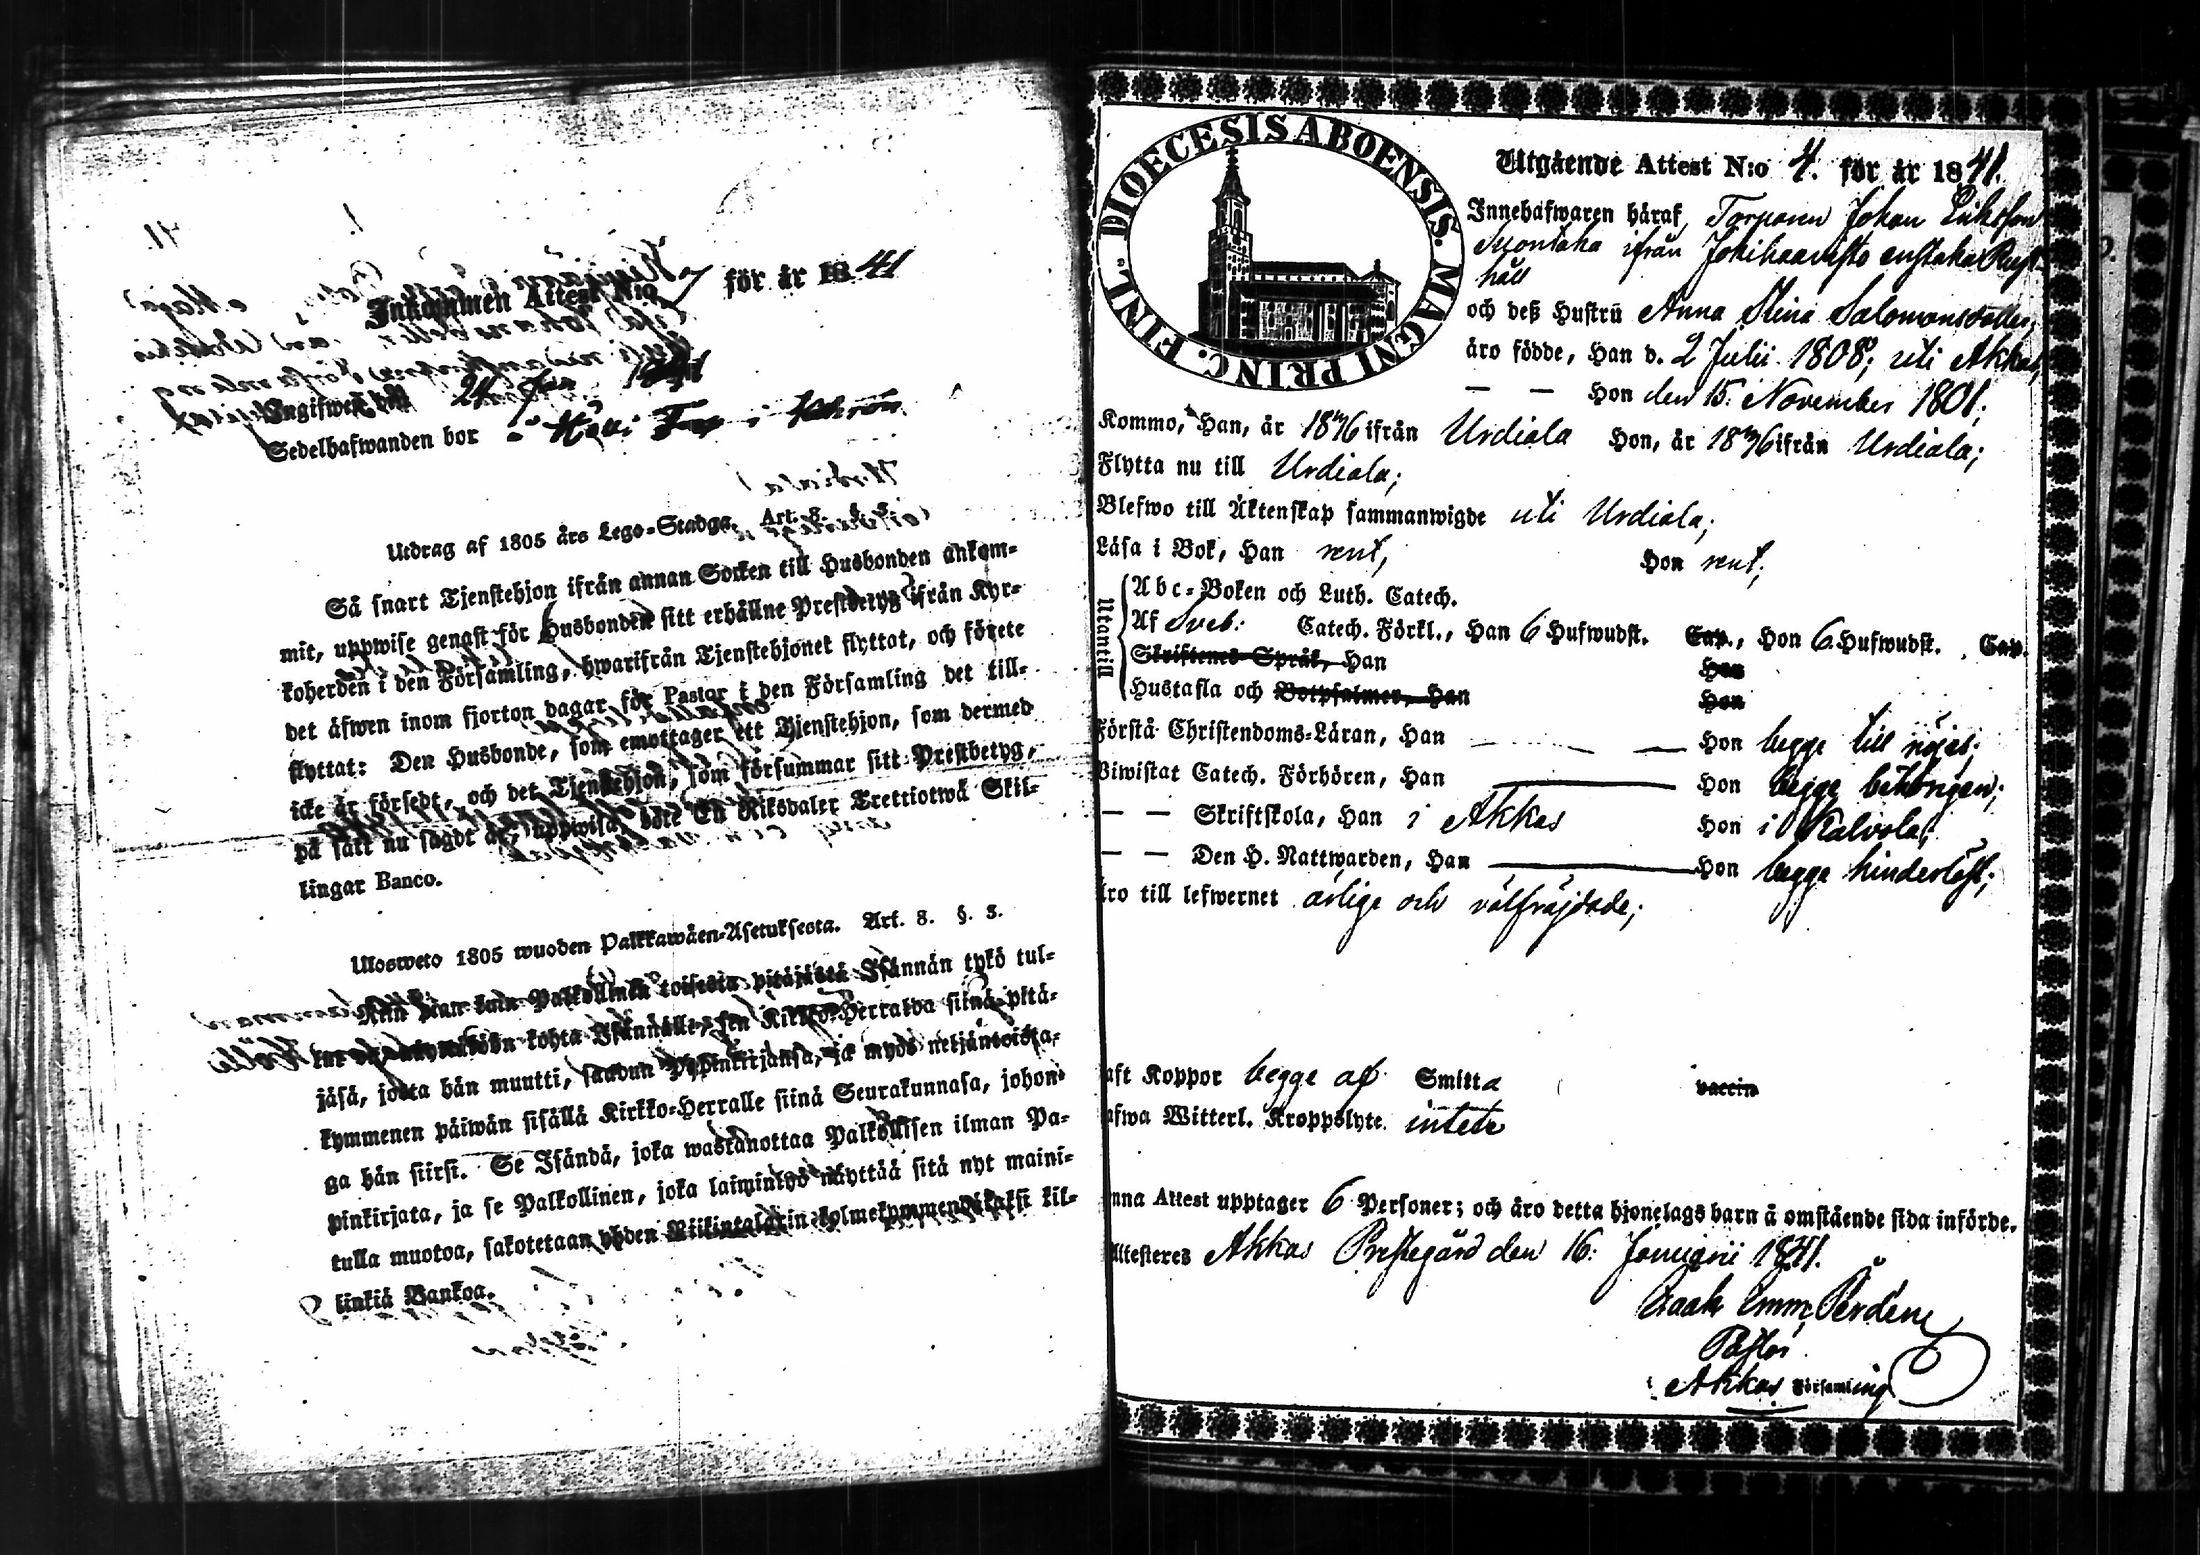 Inkommen Attest N:o 7 för år 1841
Ingifwen den 24 Jan. 1841
Sedelhafwanden bor i
Utdrag af 1805 års Lego-Stadga. Art. 8. §. 3.
Så snart Tjenstehjon ifrån annan Socken till Husbonden ankom-
mit, uppwise genast för Husbonden sitt erhållne Prestbetyg ifrån Kyr-
koherden i den Församling, hwarifrån Tjenstehjonet flyttat, och förete
det äfwen inom fjorton dagar för Pastor i den Församling det till-
flyttat: Den Husbonde, som emottager ett Tjenstehjon, som dermed
icke är försedt, och det Tjenstehjon, som försummar sitt Prestbetyg,
på sätt nu sagdt är, uppwisa, böte En Riksdaler Trettiotwå Skil-
lingar Banco.
Ulosweto 1805 wuoden Palkkawäen-Asetuksesta. Art. 8. §. 3.
Niin pian kuin Palkollinen toisesta pitäjästä Isännän tykö tul-
kohta Isännälle, sen Kirkko-Herralda siinä pitä-
jäsä, josta hän muutti, saadun Papinkirjansa, ja myös neljäntoista-
kymmenen päiwän sisällä Kirkko-Herralle siinä Seurakunnasa, johon-
ga hän siirsi. Se Isändä, joka wastanottaa Palkollisen ilman Pa-
pinkirjata, ja se Palkollinen, joka laimintyö näyttää sitä nyt maini-
tulla muotoa, sakotetaan yhden Riikintalarin kolmekymmendäkaksi kil-
linkiä Bankoa.
FINL. DIOECESIS ABOENSIS. MAGNI PRINC.
Utgående Attest N:o 4. för år 1841.
Innehafwaren häraf, Torparen Johan Eriksson
ifrån Jokihaavisto enstaka Rust-
håll
och deß Hustru Anna Stina Salomonsdotter,
äro födde, Han d. 2 Julii 1808; uti Akkas,
— — Hon den 15. November 1801;
Kommo, Han, år 1836 ifrån Urdiala Hon, år 1836 ifrån Urdiala;
Flytta nu till Urdiala;
Blefwo till Äktenskap sammanwigde uti Urdiala;
Läsa i Bok, Han rent, Hon rent;
Utantill
Abc-Boken och Luth. Catech.
Af Sveb: Catech. Förkl., Han 6 Hufwudst. Cap., Hon 6. Hufwudst. Cap.
Skriftenes Språk, Han Hon
Hustafla och Botpsalmer, Han Hon
Förstå Christendoms-Läran, Han — — Hon begge till nöjes;
Biwistat Catech. Förhören, Han — Hon begge behörigen;
— — Skriftskola, Han i Akkas Hon i Kalvola;
— — Den H. Nattwarden, Han — Hon begge hinderlöst;
äro till lefwernet ärlige och välfräjdade;
aft Koppor begge af Smitta vaccin
afwa Witterl. Kroppslyte intete
nna Attest upptager 6 Personer; och äro detta hjonelags barn å omstående sida införde.
Attesteres Akkas Prestegård den 16. Januarii 1841.
Isaak Emm.
Pastor
i Akkas Församling